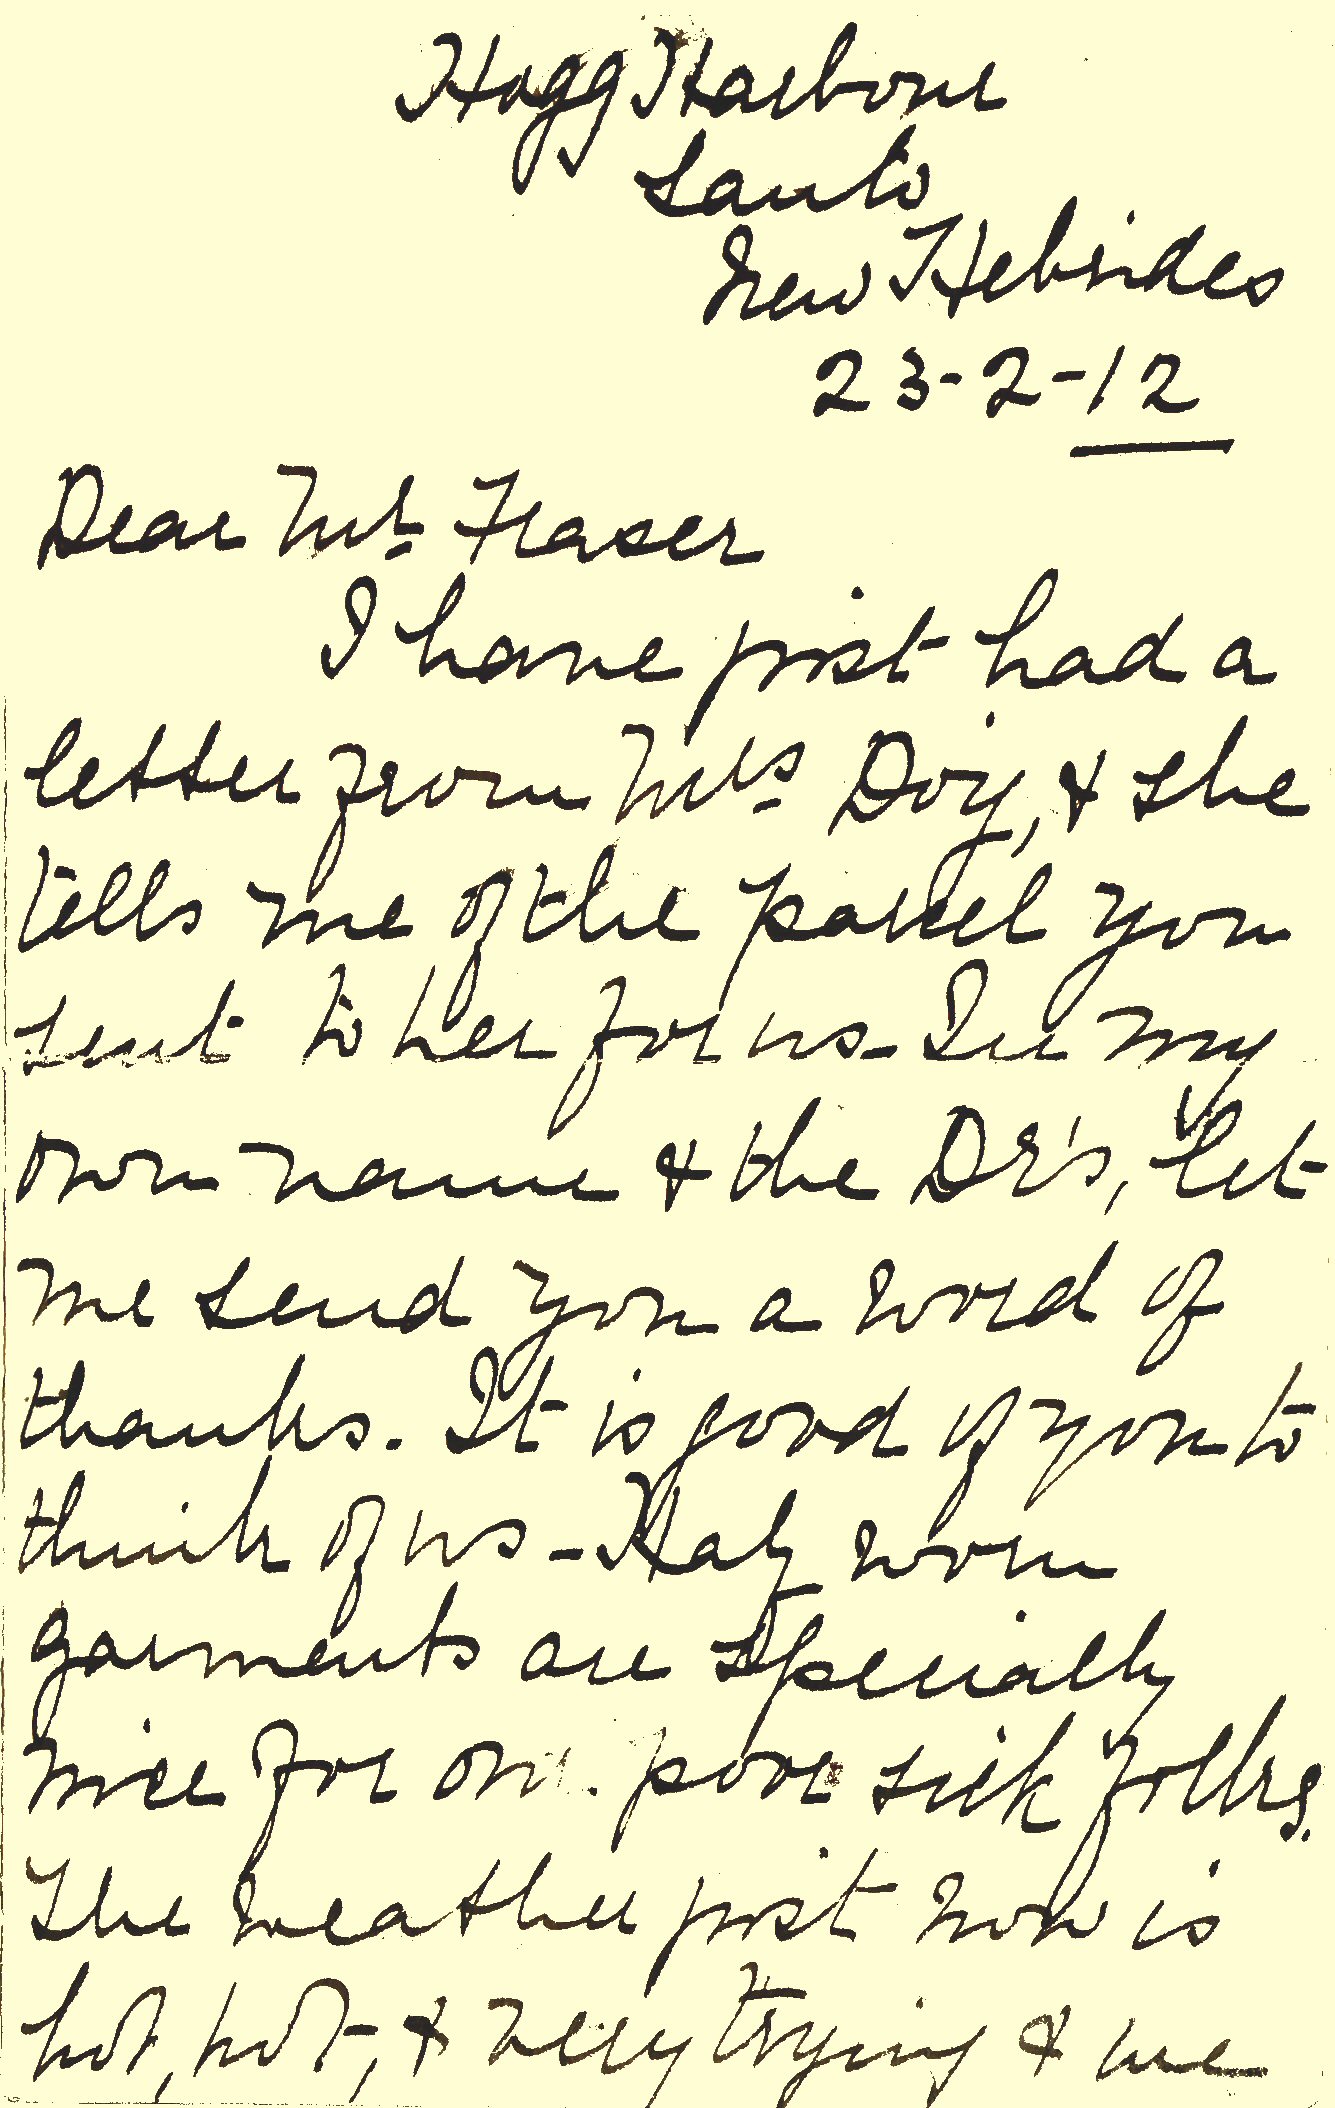 Hogg Harbour
Santo
New Hebrides
23-2-12
Dear Mr. Fraser
I have just had a
letter from Mrs. Doig, & she
tells me of the parcel you
sent to her for us - In my
own name & the Dr's, let
me send you a word of
thanks. It is good of you to
think of us - Half worn
garments are specially
nice for our poor sick folks.
The weather just now is
hot, hot, & very trying & we